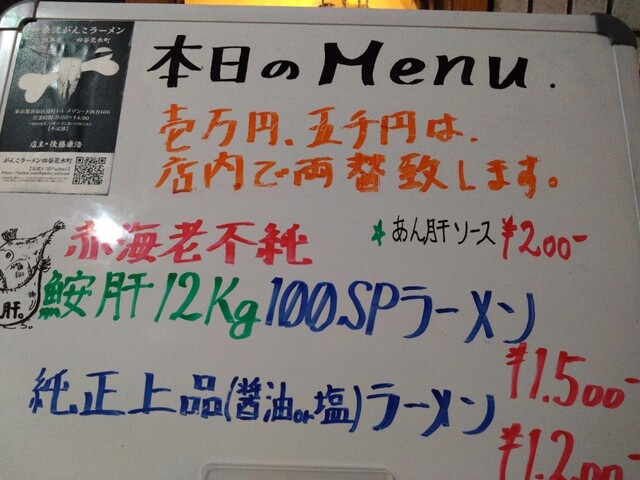 一条流がんこラーメン
四谷荒木町
営業時間 9:00~14:00
【不定休】
店主・後藤康浩
がんこラーメン四谷荒木町
本日のMenu.
壱万円、五千円は、
店内で両替致します。
赤海老不純 *あん肝ソース ¥200-
鮟肝12Kg 100SPラーメン
肝。
¥1.500-
純正上品(醤油or塩)ラーメン
¥1.200-